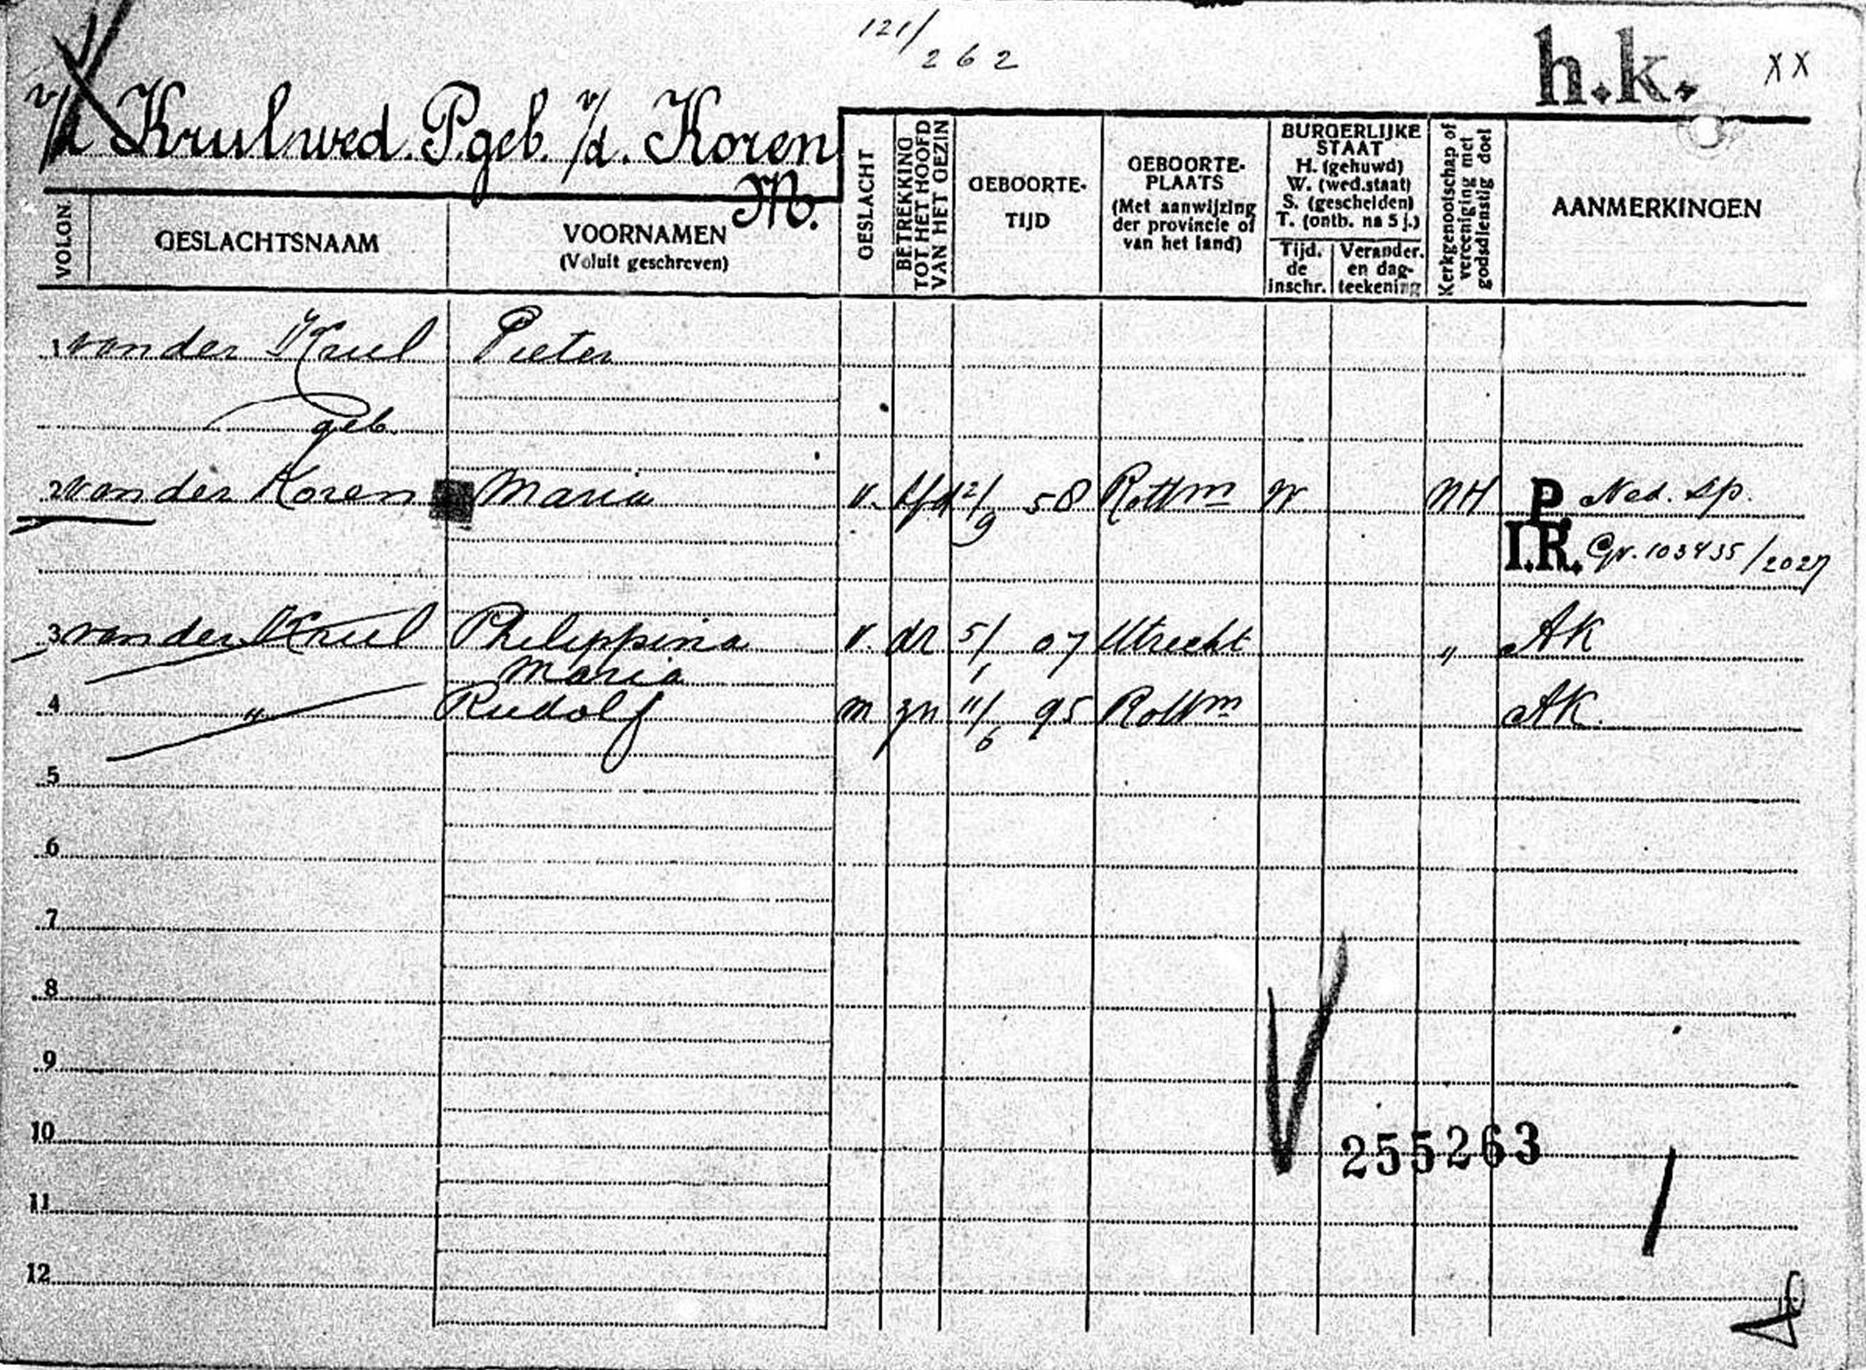 121/262
h.k. XX
v/d Krul wed. P. geb. v/d. Koren
M.
VOLGN.
GESLACHTSNAAM
VOORNAMEN
(Voluit geschreven)
GESLACHT
BETREKKING
TOT HET HOOFD
VAN HET GEZIN
GEBOORTE-
TIJD
GEBOORTE-
PLAATS
(Met aanwijzing
der provincie of
van het land)
BURGERLIJKE
STAAT
H. (gehuwd)
W. (wed.staat)
S. (gescheiden)
T. (ontb. na 5 j.)
Tijd.
de
inschr.
Verander.
en dag-
teekening
Kerkgenootschap of
vereeniging met
godsdienstig doel
AANMERKINGEN
1 van der Krul Pieter
geb.
2 van der Koren Maria v. hfd 12/9 58 Rottm W. NH P. Ned. Sp.
I.R. Gr. 103435/2027
3 van der Krul Philippina v. dr 5/1 07 Utrecht " AK
Maria
4 " Rudolf m zn 11/6 95 Rottm AK.
5
6
7
8
9
10
255263
11
12